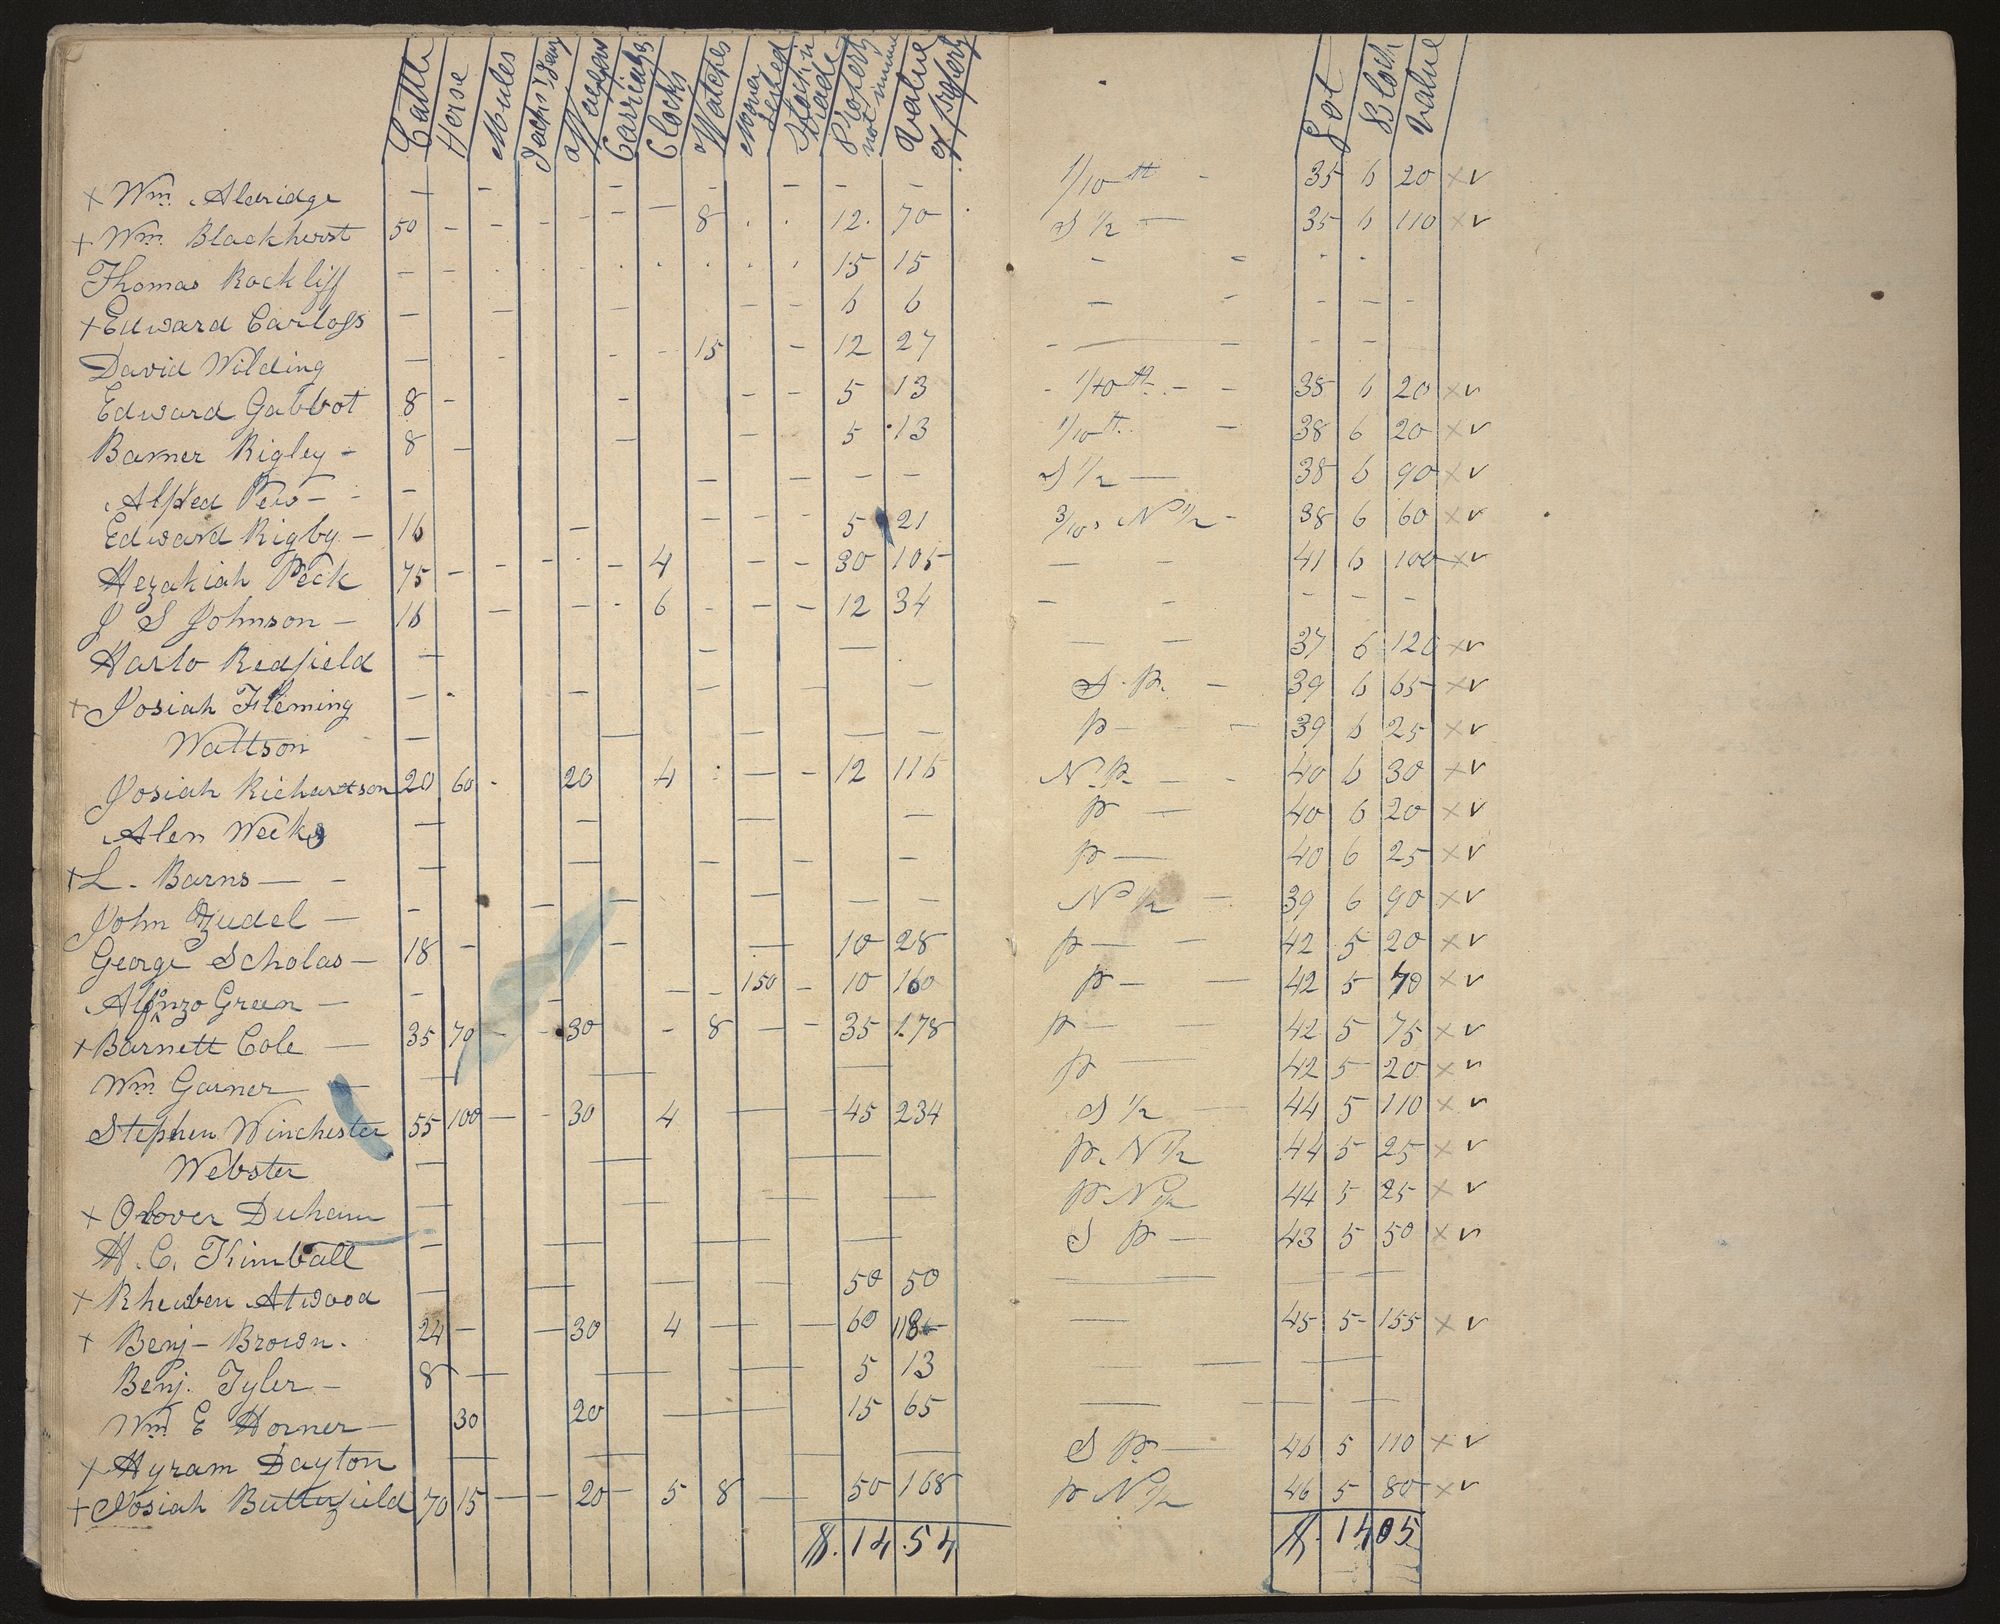 Cattle Horse Mules Jacks & Jeny Waggons Carriages Clocks Watches Money Stock in trade Property not named Value of property Lot Block Value
x Wm. Aldridge — — — — — — — 1/10th - 35 6 20 x v
+ Wm. Blackhurst 50 - - - - - 8 . . 12. 70 S 1/2 — 35 6 110 x v
Thomas Rockliff — — 15 15 - - - -
+ Edward Carloss — — — 6 6 — - - - -
David Wilding — - - 15 - 12 27 - — - - -
Edward Gabbot 8 - - - - 5 13 - 1/10th - - 38 6 20 x v
Barner Rigley - 8 - — - 5 13 1/10th. - 38 6 20 x v
Alfred Pew - - - — — — — S 1/2 — 38 6 90 x v
Edward Rigby — 16 - - - - 5 21 3/10s N 1/2 - 38 6 60 x v
Hezakiah Peck 75 - - - - - 4 - - 30 105 — - 41 6 100 x v
J S Johnson — 16 — - - 6 - - - 12 34 - - - - -
Harlo Redfield — - — — - 37 6 120 x v
+ Josiah Fleming — - - - — - S. P. - 39 6 65 x v
Wattson — — — — - P — - 39 6 25 x v
Josiah Richardson 20 60 - 20 4 — - 12 116 N. P. - - 40 6 30 x v
Alen Weeks — — — — P — 40 6 20 x v
+ L. Barns — - — — - - - P — 40 6 25 x v
John — - — — — — — N 1/2 - 39 6 90 x v
George Scholas — 18 - - — 10 28 P — - 42 5 20 x v
Alfonzo Green — - - - - 150 - 10 160 P — — 42 5 70 x v
+ Barnett Cole — 35 70 - - 30 - 8 - - 35 178 P — — 42 5 75 x v
Wm. Garner — — — — P — 42 5 20 x v
Stephen Winchester 55 100 - - 30 4 — - 45 234 S 1/2 — 44 5 110 x v
Webster — — — P. N 1/2 44 5 25 x v
+ Orlover Duham — — — — P N 1/2 44 5 25 x v
H. C. Kimball — — — — S P — 43 5 50 x v
x Rheuben Atwood — — — — 50 50 — —
+ Benj - Brown. 24 - — 30 4 — — 60 118 — 45 5 155 x v
Benj. Tyler - 8 — — — 5 13 — — —
Wm. E Horner — 30 20 — 15 65 — — - -
x Hyram Dayton — — — — S P. — 46 5 110 x v
+ Josiah Butterfield 70 15 - - 20 - 5 8 — 50 168 P N 1/2 46 5 80 x v
$. 14.54 $. 1405